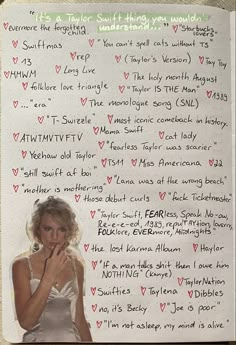 "It's a Taylor Swift thing, you wouldn't
understand..."
"evermore the forgotten
child.
"Starbucks
lovers"
Swiftmas
"You can't spell cats without TS"
13
rep
(Taylor's Version)
Tay Tay
HHWM
Long Live
The holy month August
folklore love triangle
"Taylor IS THE Man"
1989
... "era"
The monologue song (SNL)
"T-Swizzle"
most iconic comeback in history.
ATWTMVTVFTV
Mama Swift
cat lady
"fearless Taylor was scarier"
Yeehaw old Taylor
TS11
Miss Americana
22
"still swift af boi"
"Lana was at the wrong beach"
"mother is mothering"
those debut curls
"fuck Ticketmaster"
"Taylor Swift, FEARless, Speak No-ow,
Re-e-e-ed, 1989, repuTAYtion, lovern,
FOLKlore, EVERmore, Midnights"
the lost Karma Album
Haylor
"If a man talks shit then I owe him
NOTHING" (Kanye)
Taylor Nation
Swifties
Taylena
Dibbles
no, it's Becky
"Joe is poor"
"I'm not asleep, my mind is alive"